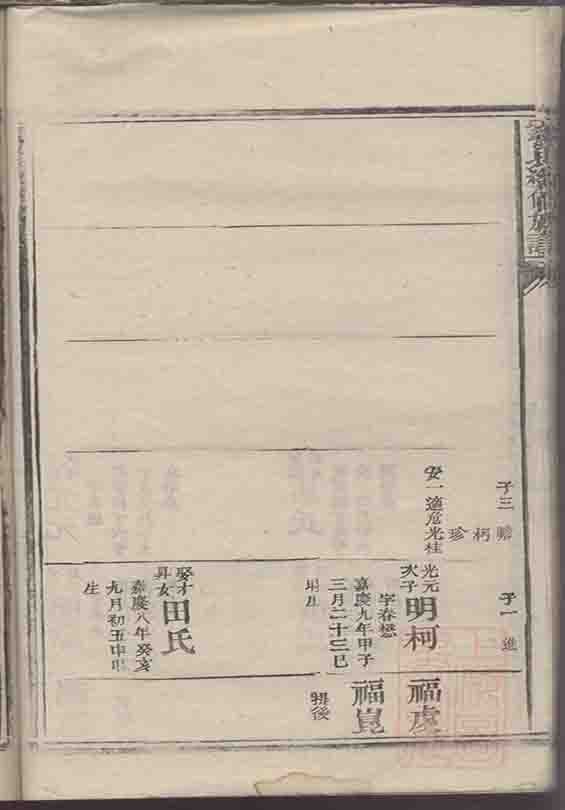 氏續修族譜
子三
柯
珍
女一適危光桂
子一進
光元
次子
明柯
字春懋
嘉慶九年甲子
三月二十三巳
時生
娶才
昇女
田氏
嘉慶八年癸亥
九月初五申時
生
福虔
福崑
後